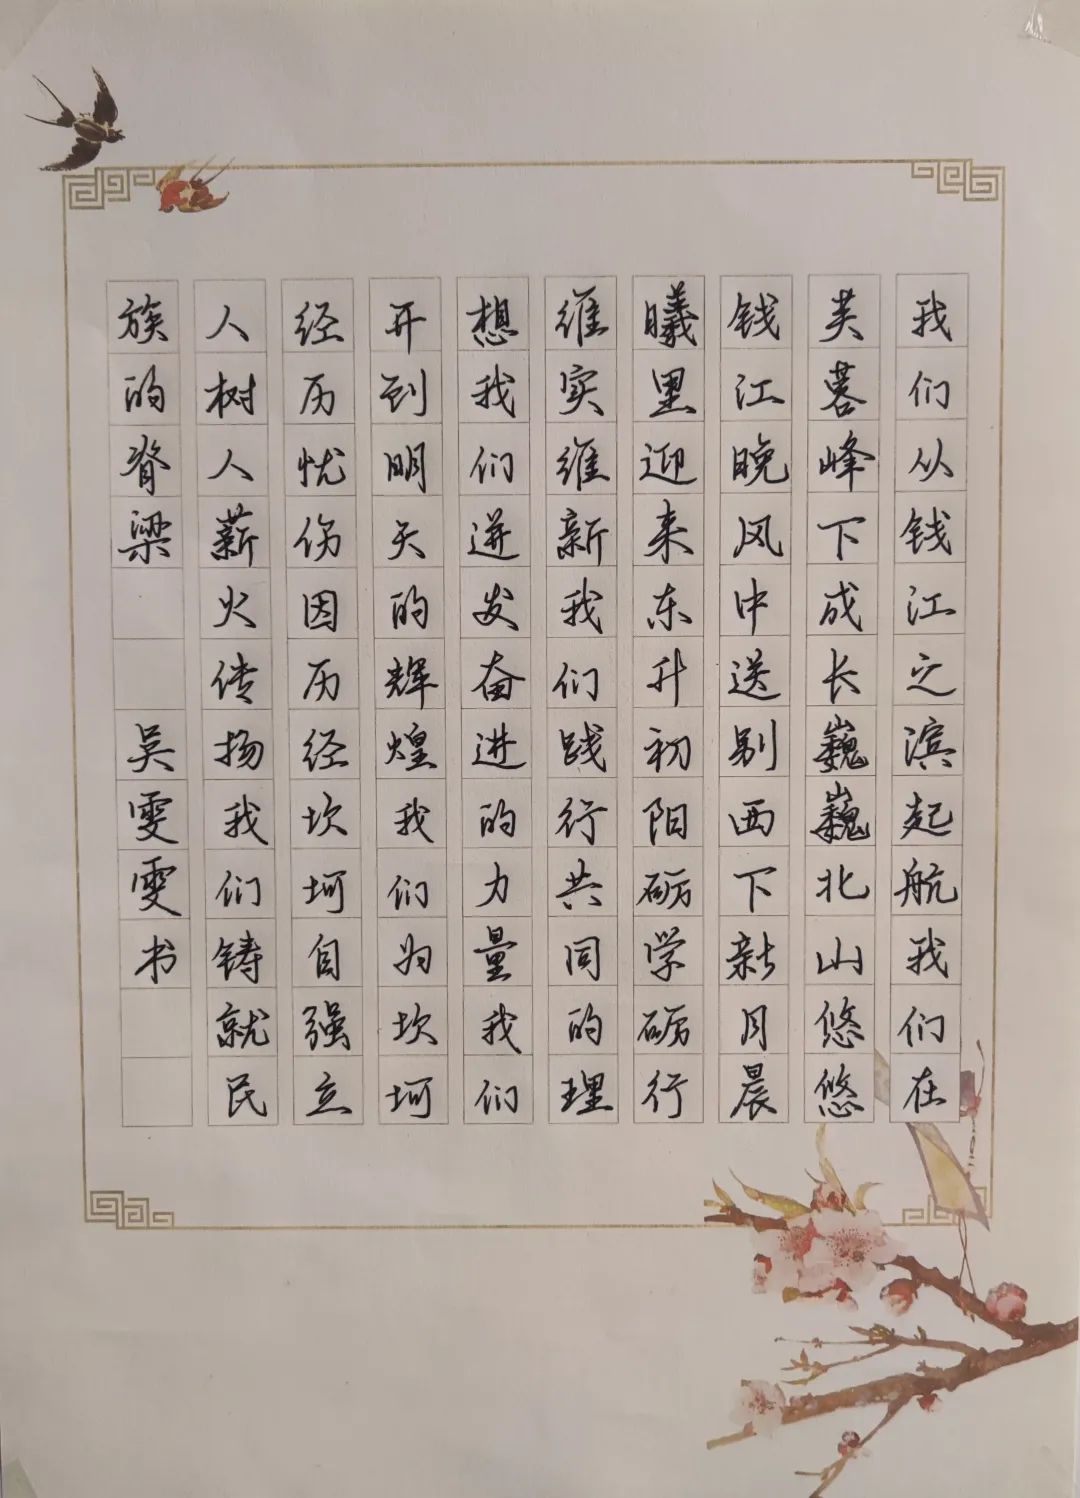 我们从钱江之滨起航我们在
芙蓉峰下成长巍巍北山悠悠
钱江晚风中送别西下新月晨
曦里迎来东升初阳砺学砺行
维实维新我们践行共同的理
想我们迸发奋进的力量我们
开创明天的辉煌我们为坎坷
经历忧伤因历经坎坷自强立
人树人薪火传扬我们铸就民
族的脊梁 吴雯雯书